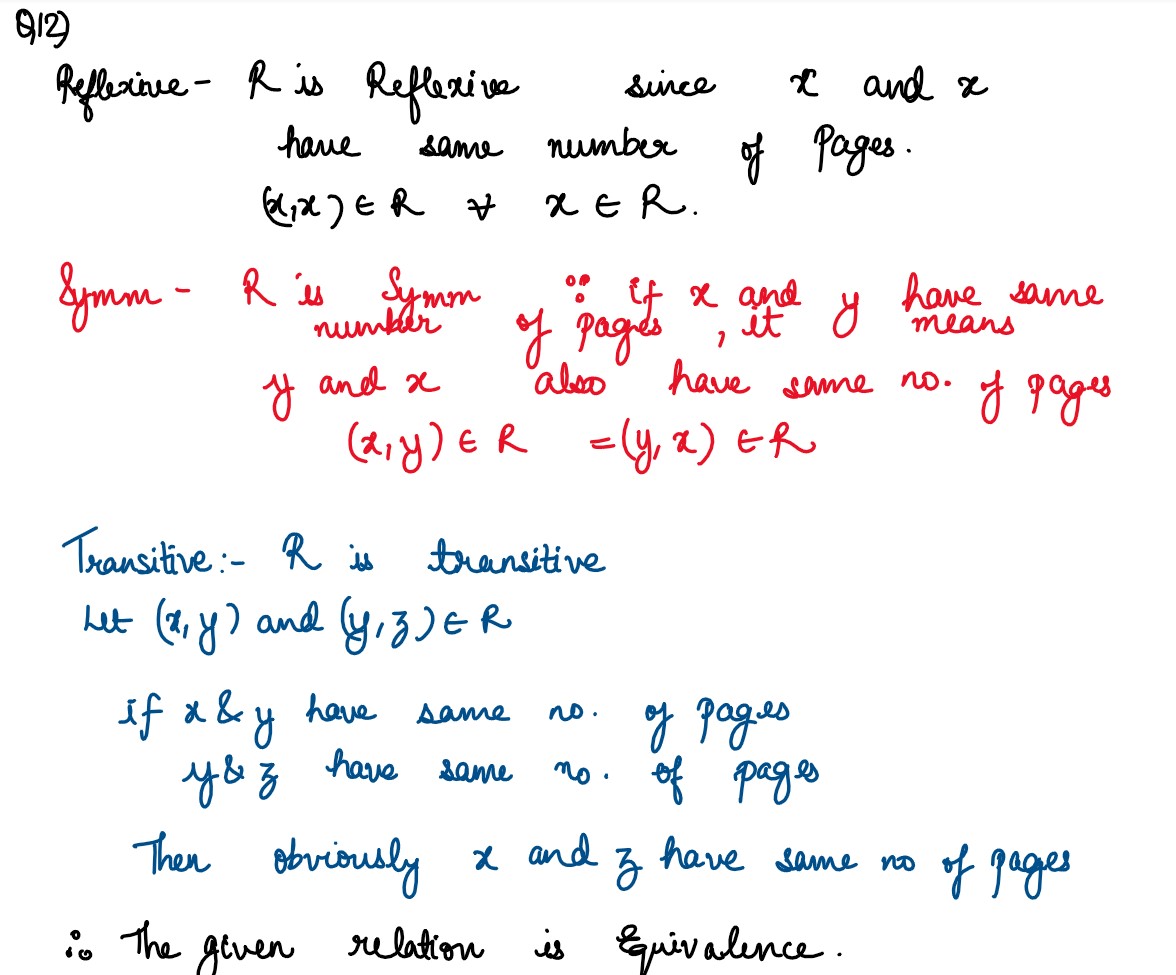 Q12)
Reflexive - R is Reflexive since x and x
have same number of Pages.
(x,x) ∈ R ∀ x ∈ R.
Symm - R is Symm ∵ if x and y have same
number of pages, it means
y and x also have same no. of pages
(x,y) ∈ R = (y,x) ∈ R
Transitive:- R is transitive
Let (x,y) and (y,z) ∈ R
if x & y have same no. of pages
y & z have same no. of pages
Then obviously x and z have same no of pages
∴ The given relation is Equivalence.